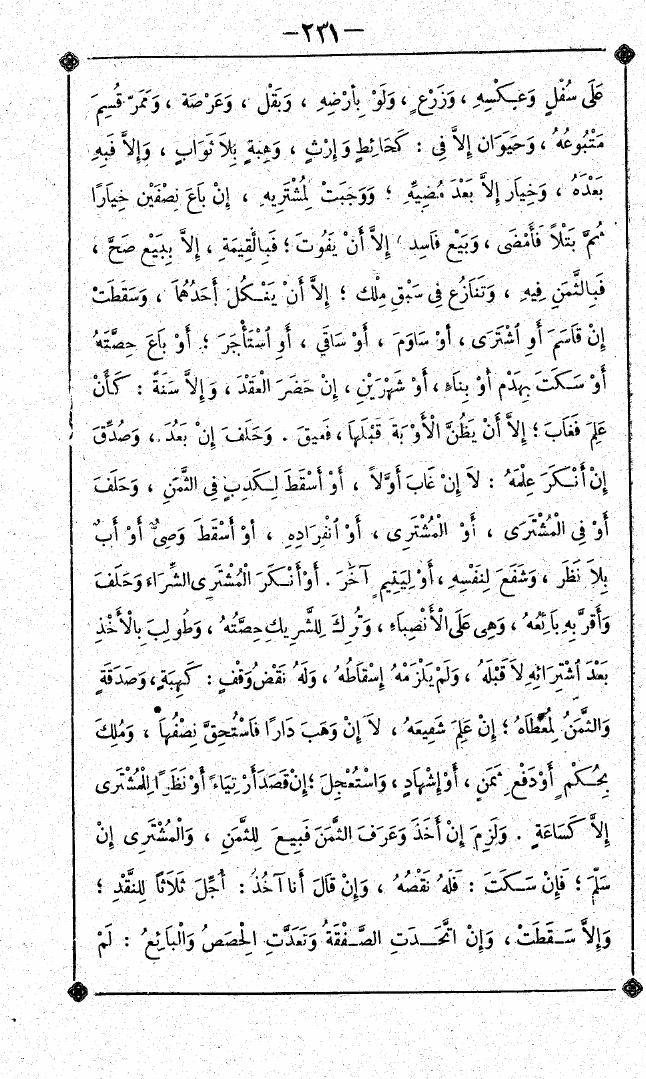 — ٢٣١ —
عَلَى سُفْلٍ وَعَكْسِهِ ، وَزَرْعٍ ، وَلَوْ بِأَرْضِهِ ، وَبَقْلٍ ، وَعَرْصَةٍ ، وَمَمَرٍّ قُسِمَ
مَتْبُوعُهُ ، وَحَيَوَانٍ إِلاَّ فِي : كَحَائِطٍ وَإِرْثٍ ، وَهِبَةٍ بِلاَ ثَوَابٍ ، وَإِلاَّ فَبِهِ
بَعْدَهُ ، وَخِيَارٍ إِلاَّ بَعْدَ مُضِيِّهِ ؛ وَوَجَبَتْ لِمُشْتَرِيهِ ، إِنْ بَاعَ نِصْفَيْنِ خِيَارًا
ثُمَّ بَتْلاً فَأَمْضَى ، وَبَيْعٍ فَاسِدٍ إِلاَّ أَنْ يَفُوتَ ؛ فَبِالْقِيمَةِ ، إِلاَّ بِبَيْعٍ صَحَّ ،
فَبِالثَّمَنِ فِيهِ ، وَتَنَازُعٍ فِي سَبْقِ مِلْكٍ ؛ إِلاَّ أَنْ يَنْكُلَ أَحَدُهُمَا ، وَسَقَطَتْ
إِنْ قَاسَمَ أَوِ اشْتَرَى ، أَوْ سَاوَمَ ، أَوْ سَاقَى ، أَوِ اسْتَأْجَرَ ؛ أَوْ بَاعَ حِصَّتَهُ
أَوْ سَكَتَ بِهَدْمٍ أَوْ بِنَاءٍ ، أَوْ شَهْرَيْنِ ، إِنْ حَضَرَ الْعَقْدَ ، وَإِلاَّ سَنَةً : كَأَنْ
عَلِمَ فَغَابَ ؛ إِلاَّ أَنْ يَظُنَّ الْأَوْبَةَ قَبْلَهَا ، فَعِيقَ . وَحَلَفَ إِنْ بَعُدَ ، وَصُدِّقَ
إِنْ أَنْكَرَ عِلْمَهُ : لاَ إِنْ غَابَ أَوَّلاً ، أَوْ أَسْقَطَ لِكَذِبٍ فِي الثَّمَنِ ، وَحَلَفَ
أَوْ فِي الْمُشْتَرَى ، أَوْ الْمُشْتَرِي ، أَوْ انْفِرَادِهِ ، أَوْ أَسْقَطَ وَصِيٌّ أَوْ أَبٌ
بِلاَ نَظَرٍ ، وَشَفَعَ لِنَفْسِهِ ، أَوْ لِيَتِيمٍ آخَرَ . أَوْ أَنْكَرَ الْمُشْتَرِي الشِّرَاءَ وَحَلَفَ
وَأَقَرَّ بِهِ بَائِعُهُ ، وَهِيَ عَلَى الْأَنْصِبَاءِ ، وَتُرِكَ لِلشَّرِيكِ حِصَّتُهُ ، وَطُولِبَ بِالْأَخْذِ
بَعْدَ اشْتِرَائِهِ لاَ قَبْلَهُ ، وَلَمْ يَلْزَمْهُ إِسْقَاطُهُ ، وَلَهُ نَقْضُ وَقْفٍ : كَهِبَةٍ ، وَصَدَقَةٍ
وَالثَّمَنُ لِمُعْطَاهُ ؛ إِنْ عَلِمَ شَفِيعَهُ ، لاَ إِنْ وَهَبَ دَارًا فَاسْتُحِقَّ نِصْفُهَا ، وَمُلِكَ
بِحُكْمٍ أَوْ دَفْعِ ثَمَنٍ ، أَوْ إِشْهَادٍ ، وَاسْتُعْجِلَ ؛ إِنْ قَصَدَ ارْتِيَاءً أَوْ نَظَرًا لِلْمُشْتَرَى
إِلاَّ كَسَاعَةٍ . وَلَزِمَ إِنْ أَخَذَ وَعَرَفَ الثَّمَنَ فَبِيعَ لِلثَّمَنِ ، وَالْمُشْتَرِي إِنْ
سَلَّمَ ؛ فَإِنْ سَكَتَ : فَلَهُ نَقْضُهُ ، وَإِنْ قَالَ أَنَا آخُذُ : أُجِّلَ ثَلَاثًا لِلنَّقْدِ ؛
وَإِلاَّ سَقَطَتْ ، وَإِنْ اتَّحَدَتِ الصَّفْقَةُ وَتَعَدَّتِ الْحِصَصُ وَالْبَائِعُ : لَمْ